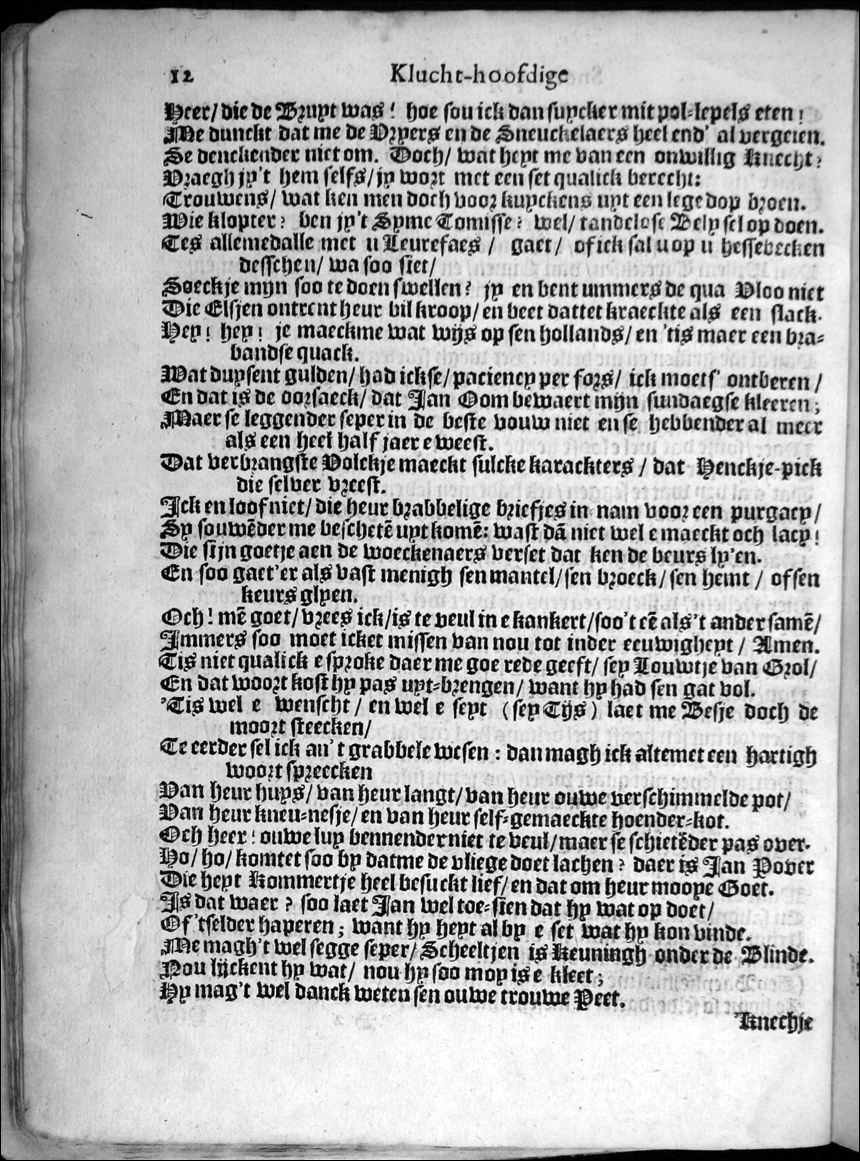 12 Klucht-hoofdige
Heer/ die de Bruyt was! hoe sou ick dan suycker mit pol-lepels eten!
Me dunckt dat me de Vryers en de Sneuckelaers heel end' al vergeten.
Se denckender niet om. Doch/ wat heyt me van een onwillig Knecht?
Vraegh jy't hem selfs/ jy wort met een set qualick berecht:
Trouwens/ wat ken men doch voor kuyckens uyt een lege dop broen.
Wie klopter? ben jy't Syme Tomisse? wel/ tandelose Bely sel op doen.
Tes allemedalle met u Leurefaes / gaet/ of ick sal u op u hessebecken
desschen/ wa soo siet/
Soeckje mijn soo te doen swellen? jy en bent ummers de qua Vloo niet
Die Elsjen ontrent heur bil kroop/ en beet dattet kraeckte als een slack.
Hey! hey! je maeckme wat wijs op sen hollands/ en 'tis maer een bra-
bandse quack.
Wat duysent gulden/ had ickse/ paciency per fors/ ick moets' ontberen /
En dat is de oorsaeck/ dat Jan Oom bewaert mijn sundaegse kleeren;
Maer se leggender seper in de beste vouw niet en se hebbender al meer
als een heel half jaer e weest.
Dat verbrangste Volckje maeckt sulcke karackters / dat Henckje-pick
die selver vreest.
Ick en loof niet/ die heur brabbelige briefjes in nam voor een purgacy/
Sy souwẽder me beschetẽ uyt komẽ: wast dã niet wel e maeckt och lacy!
Die sijn goetje aen de woeckenaers verset dat ken de beurs ly'en.
En soo gaet'er als vast menigh sen mantel/ sen broeck/ sen hemt / of sen
keurs glyen.
Och! mẽ goet/ vrees ick/ is te veul in e kankert/ soo't eẽ als 't ander samẽ/
Immers soo moet icket missen van nou tot inder eeuwigheyt / Amen.
Tis niet qualick e sproke daer me goe rede geeft/ sey Louwtje van Grol/
En dat woort kost hy pas uyt-brengen/ want hy had sen gat vol.
'Tis wel e wenscht / en wel e seyt (sey Tijs) laet me Besje doch de
moort steecken/
Te eerder sel ick an't grabbele wesen: dan magh ick altemet een hartigh
woort spreecken
Van heur huys/ van heur langt/ van heur ouwe verschimmelde pot/
Van heur kneu-nesje/ en van heur self-gemaeckte hoender-kot.
Och heer! ouwe luy bennender niet te veul/ maer se schietẽder pas over.
Ho/ ho/ komtet soo by datme de vliege doet lachen? daer is Jan Pover
Die heyt Kommertje heel besuckt lief/ en dat om heur mooye Goet.
Is dat waer? soo laet Jan wel toe-sien dat hy wat op doet/
Of 'tselder haperen; want hy heyt al by e set wat hy kon vinde.
Me magh't wel segge seper/ Scheeltjen is Keuningh onder de Blinde.
Nou lijckent hy wat/ nou hy soo moy is e kleet;
Hy mag't wel danck weten sen ouwe trouwe Peet.
'Knechje